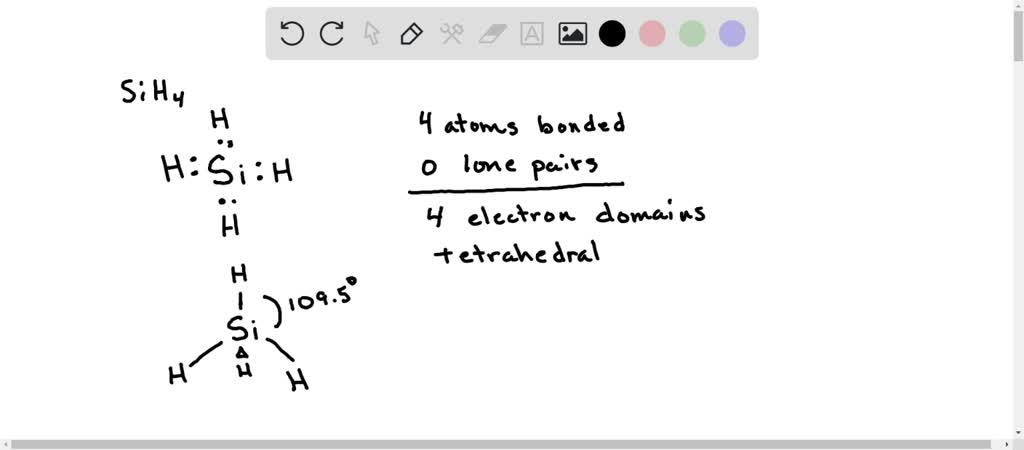 SiH4
H
H:Si:H
H
4 atoms bonded
0 lone pairs
4 electron domains
tetrahedral
H
109.5°
Si
H H H
A